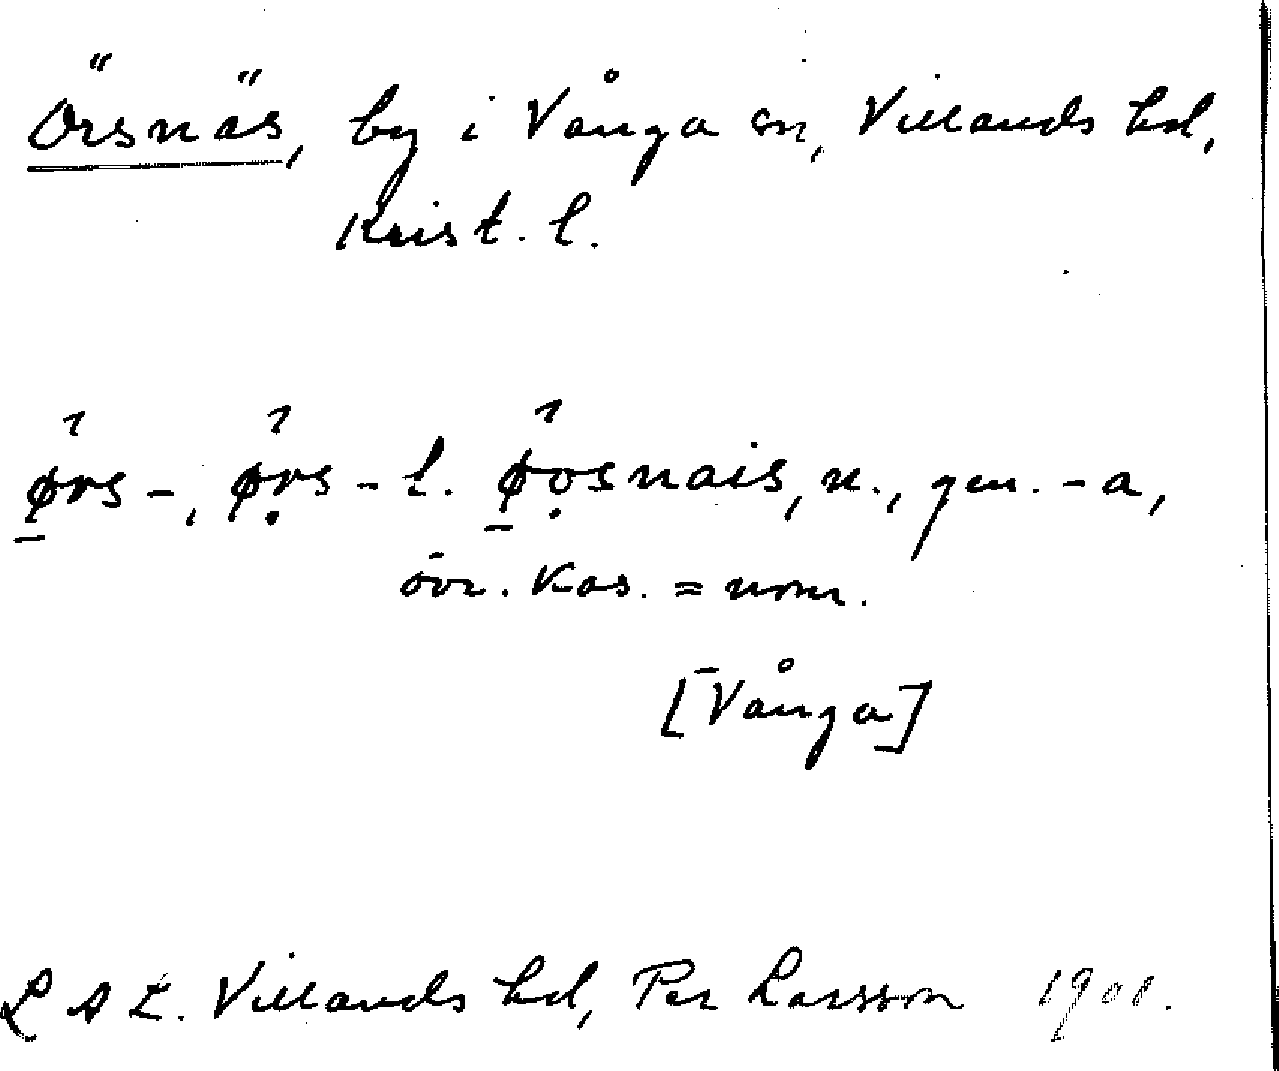 Örsnäs, by i Vånga sn, Villands hd,
Krist. l.
ørs-, øṛs- l. øọsnais, n., gen. -a,
övr. kas. = nom.
[Vånga]
L A L. Villands hd, Per Larsson 1901.